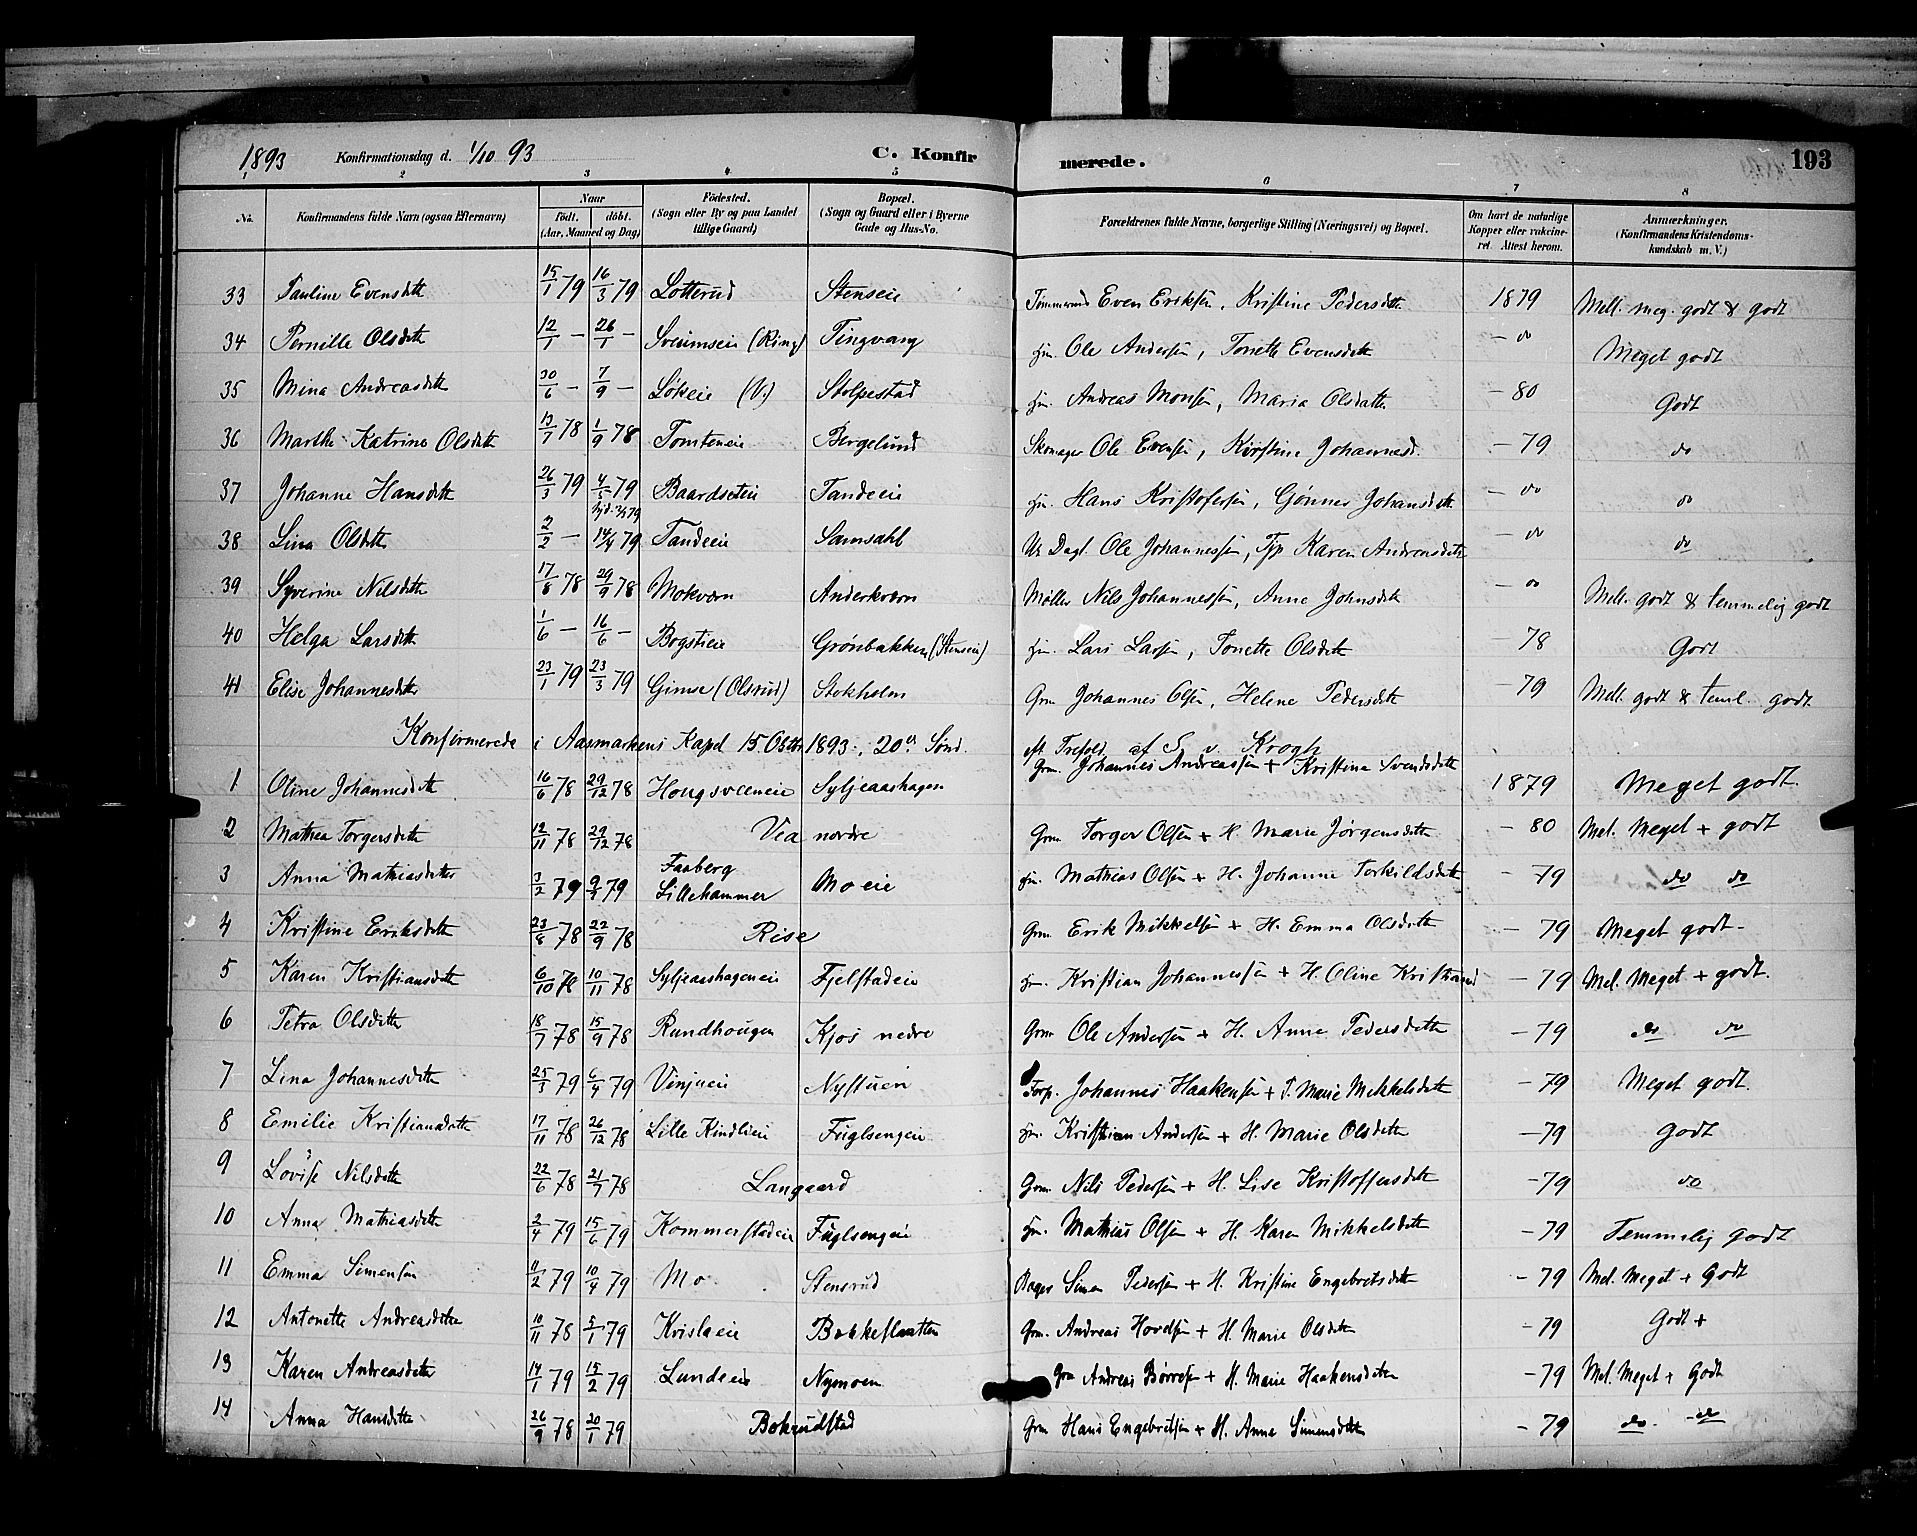 1893 Konfirmationsdag d. 1/10 93 C. Konfirmerede. 193
2 3 4 5 6 7 8
No. Konfirmandens fulde Navn (ogsaa Efternavn) Naar født. døbt. (Aar, Maaned og Dag) Fødested. (Sogn eller By og paa Landet tillige Gaard) Bopæl. (Sogn og Gaard eller i Byerne Gade og Hus-No. Forældrenes fulde Navne, borgerlige Stilling (Næringsvei) og Bopæl. Om havt de naturlige Kopper eller vakcineret. Attest herom. Anmærkninger. (Konfirmandens Kristendomskundskab m. V.)
33 Pauline Evensdtt 15/1 79 16/3 79 Lotterud Stenseie Tømmermd Even Eriksen, Kristine Pedersdtt 1879 Mell. meg. godt & godt
34 Pernille Olsdtt 12/1 — 26/1 — Sveumseie (Ring) Tingvang Hm. Ole Andersen, Tonette Evensdtt — do Meget godt
35 Mina Andreasdtt 30/6 — 7/9 — Løkeie (V.) Stolpestad Hm. Andreas Monsen, Maria Olsdatter — 80 Godt
36 Marthe Katrine Olsdtt 13/7 78 1/9 78 Tomteneie Bergelund Skomager Ole Evensen, Kirstine Johannesd. — 79 do
37 Johanne Hansdtt 26/3 79 4/5 79 Baardseteie Tandeeie Hm. Hans Kristofersen, Gønner Johansdtt — do do
38 Lina Olsdtt 2/2 — 14/4 79 Tandeeie Samsahl Ur Dagl. Ole Johannessen, Tjp Karen Andreasdtt — do do
39 Syverine Nilsdtt 17/8 78 29/9 78 Mokvern Anderkværn Møller Nils Johannessen, Anne Johnsdtt — do Mell. godt & temmelig godt
40 Helga Larsdtt 1/6 — 16/6 — Bogstieie Grønbakken (Stenseie) Hm. Lars Larsen, Tonette Olsdtt — 78 Godt
41 Elise Johannesdtt 23/1 79 23/3 79 Gimse (Olsrud) Stokholm Grm Johannes Olsen, Helene Pedersdtt — 79 Mell. godt & teml. godt
Konfirmerede i Aasmarkens Kapel 15. Oktbr 1893, 20de Sønd. eft. Trefold. af S. v. Krogh
1 Oline Johannesdtt 16/6 78 29/12 78 Hougsveeneie Syljeaashagen Grm. Johannes Andreassen + Kristine Svendsdtt 1879 Meget godt.
2 Mathea Torgersdtt 12/11 78 29/12 78 Vea nordre Grm Torger Olsen + H. Marie Jørgensdtt — 80 Mel. Meget + godt
3 Anna Mathiasdtt 3/2 79 9/4 79 Faaberg Lillehammer Moeie Hm. Mathias Olsen + H. Johanne Torkildsdtt — 79 do do
4 Kristine Eriksdtt 23/8 78 22/9 78 Rise Grm Erik Mikkelsen + H. Emma Olsdtt — 79 Meget godt -
5 Karen Kristiansdtt 6/10 78 10/11 78 Syljeaashageneie Fjelstadeie Hm. Kristian Johannessen + H. Oline Kristiansd — 79 Mel. Meget + godt.
6 Petra Olsdtt 18/7 78 15/9 78 Rundhougen Kjos nedre Grm Ole Andersen + H. Anne Pedersdtt — 79 do do
7 Lina Johannesdtt 25/3 79 6/4 79 Vinjueie Nystuen Forp. Johannes Haakensen + P. Marie Mikkelsdtt — 79 Meget godt.
8 Emilie Kristiansdtt 17/11 78 26/12 78 Lille Kindlieie Fuglsengen Hm. Kristian Andersen + H. Marie Olsdtt — 79 godt
9 Lovise Nilsdtt 22/6 78 21/7 78 Langaard Grm Nils Pedersen + H. Lise Kristoffersdtt — 79 do
10 Anna Mathiasdtt 2/4 79 15/6 79 Kommerstadeie Fuglsengeie Hm. Mathias Olsen + H. Karen Mikkelsdtt — 79 Temmelig godt
11 Emma Simensen 11/2 79 10/4 79 Mo Stensrud Bager Simen Pedersen + H. Kristine Engebretsdtt — 79 Mel. Meget + Godt
12 Antonette Andreasdtt 10/11 78 5/1 79 Krislaeie Bakkeflaatten Grm. Andreas Hovdsen + H. Marie Olsdtt — 79 Godt +
13 Karen Andreasdtt 14/1 79 15/2 79 Lundeie Nymoen Grm Andreas Børresen + H. Marie Haakensdtt — 79 Mel. Meget + Godt
14 Anna Hansdtt 26/9 78 20/1 79 Bokrudstad Grm Hans Engebretsen + H. Anna Simensdtt — 79 do. do